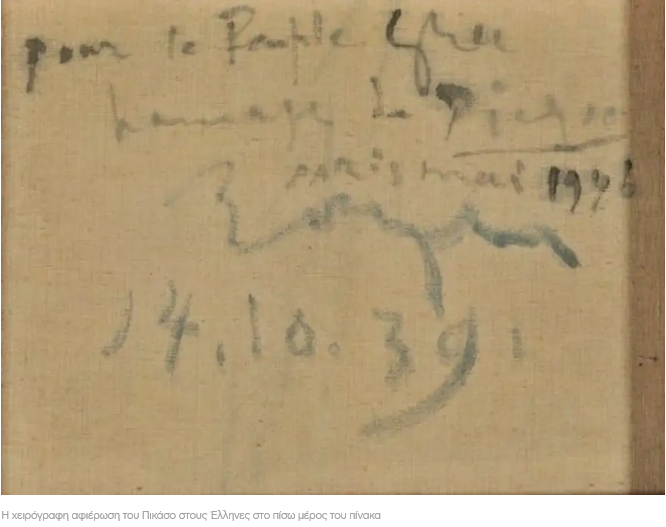 pour le Peuple Grec
hommage de Picasso
Paris mai 1946
Royan
14.10.39.
Η χειρόγραφη αφιέρωση του Πικάσο στους Έλληνες στο πίσω μέρος του πίνακα